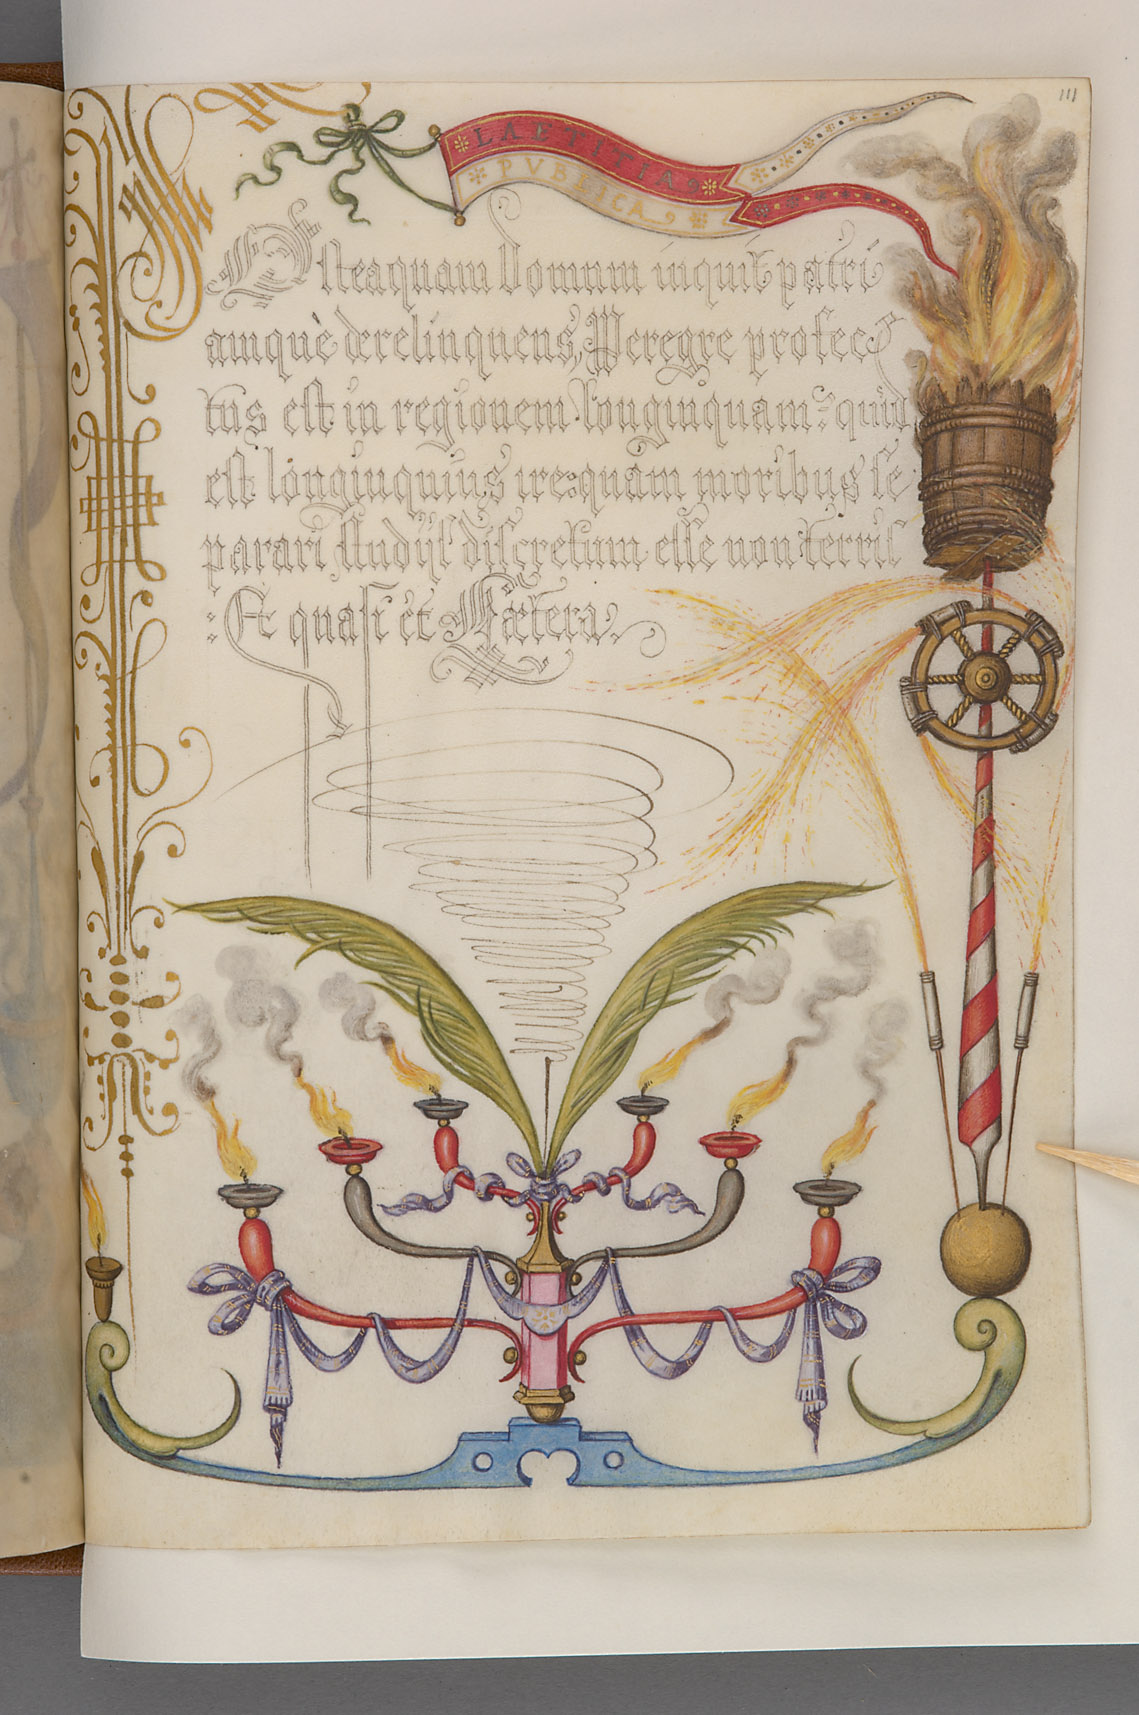 111
LAETITIA
PVBLICA
Osteaquam Domum inquit patri
amque derelinquens, Peregre profec
tus est in regionem longinquam: quid
est longinquius ire: quam moribus se
parari studijs discretum esse non terris
: Et quasi et Cætera.